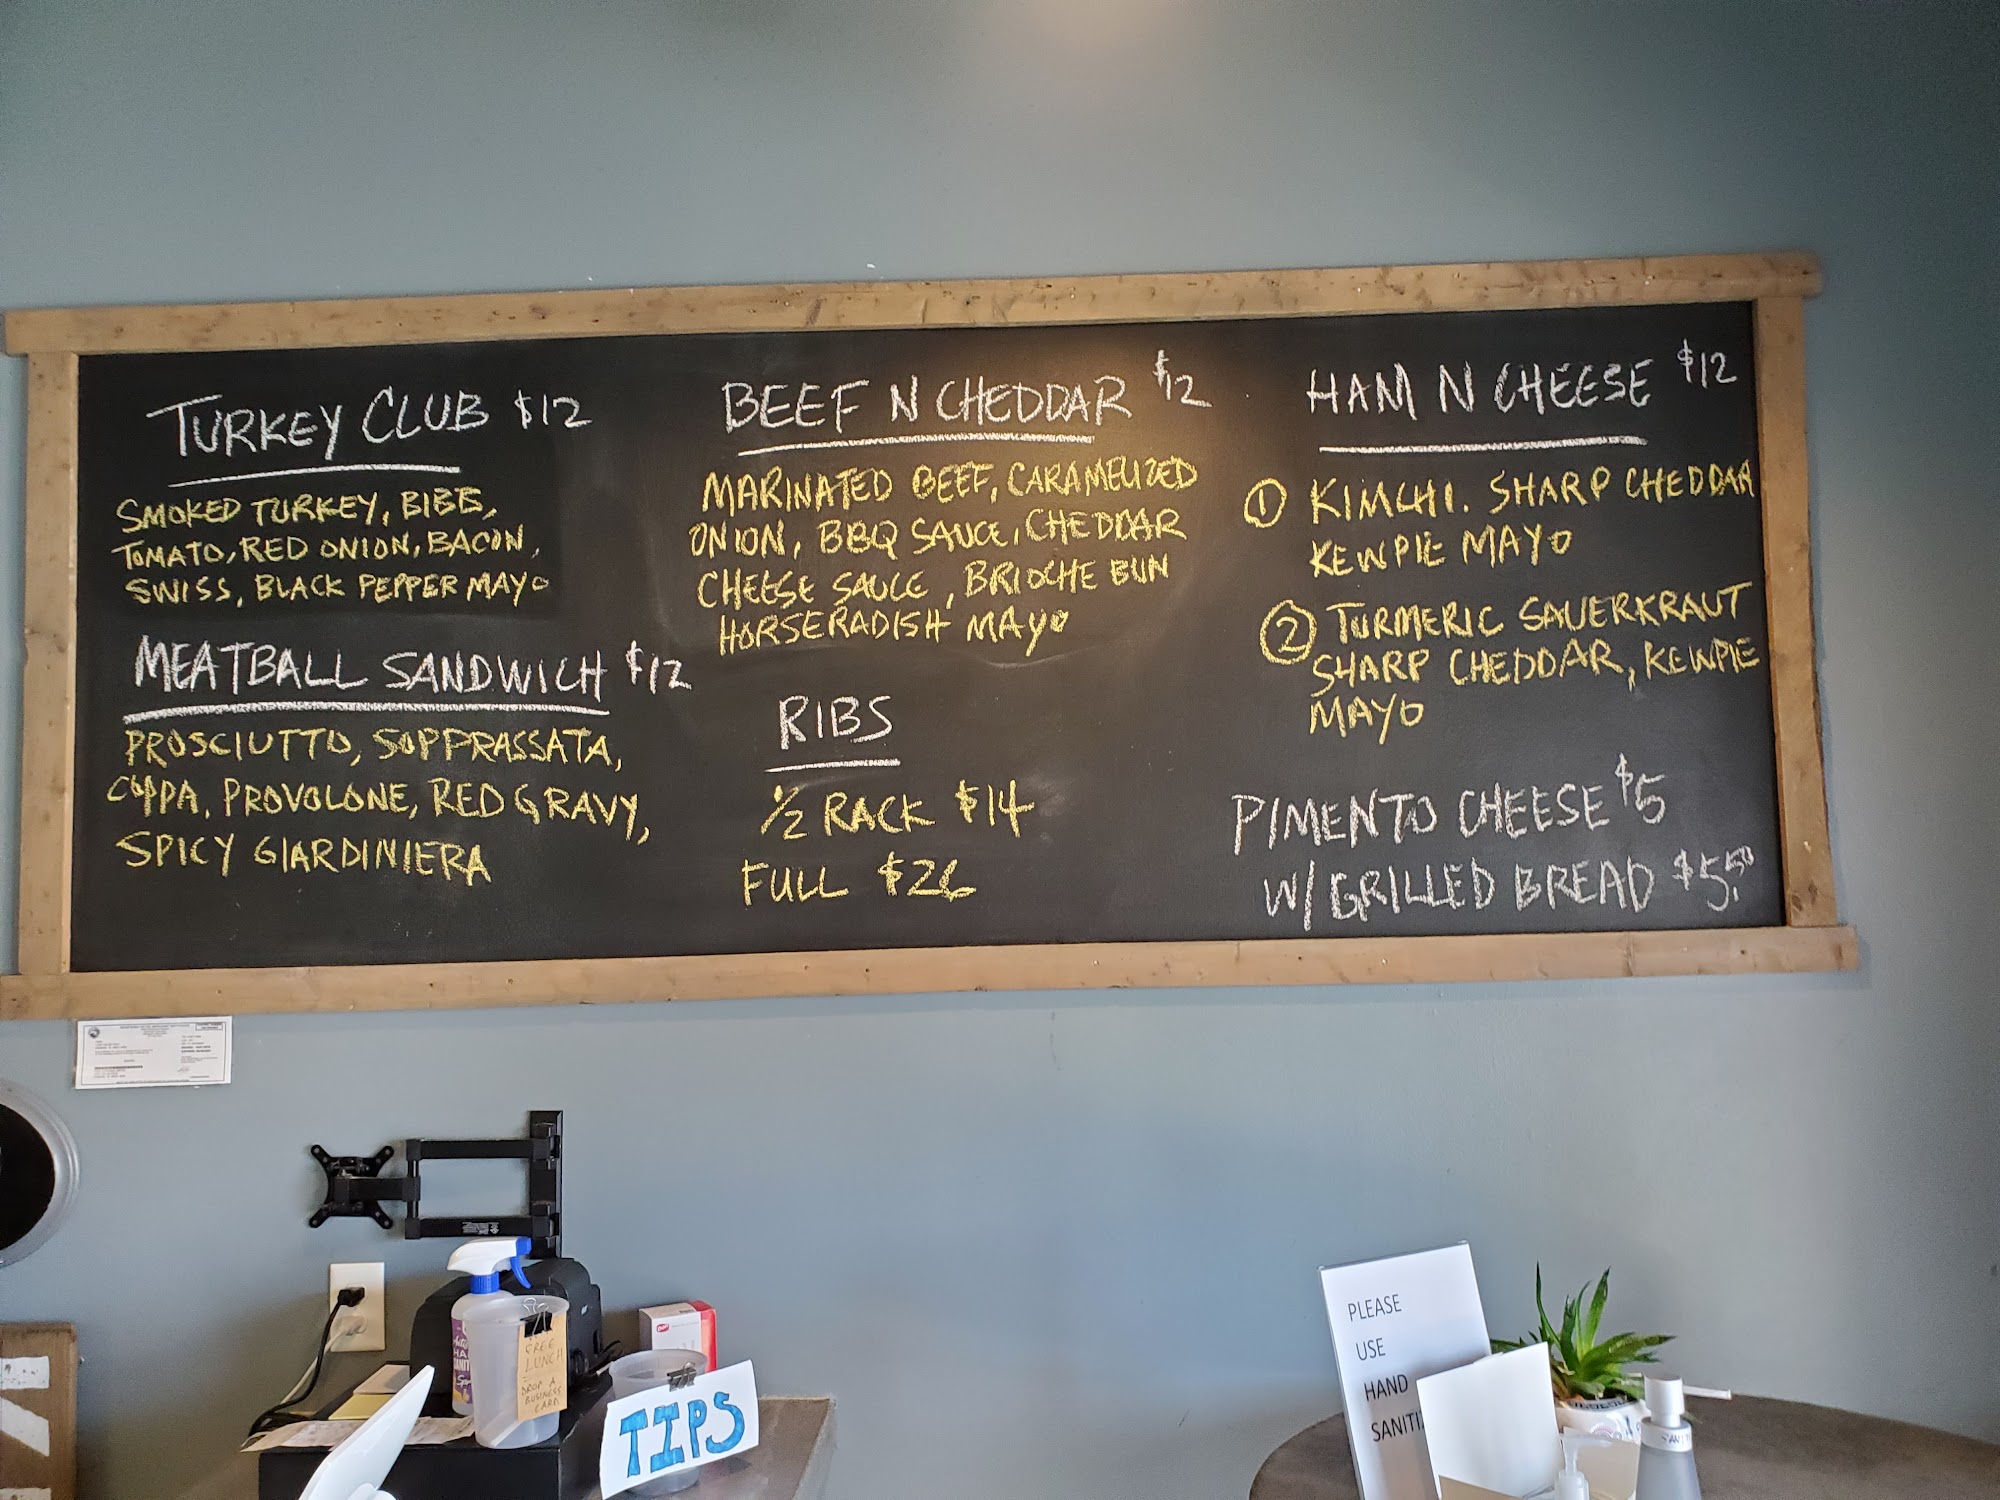 TURKEY CLUB $12
SMOKED TURKEY, BIBB,
TOMATO, RED ONION, BACON,
SWISS, BLACK PEPPER MAYO
MEATBALL SANDWICH $12
PROSCIUTTO, SOPPRASSATA,
COPPA, PROVOLONE, RED GRAVY,
SPICY GIARDINIERA
BEEF N CHEDDAR $12
MARINATED BEEF, CARAMELIZED
ONION, BBQ SAUCE, CHEDDAR
CHEESE SAUCE, BRIOCHE BUN
HORSERADISH MAYO
RIBS
1/2 RACK $14
FULL $26
HAM N CHEESE $12
① KIMCHI. SHARP CHEDDAR
KEWPIE MAYO
② TURMERIC SAUERKRAUT
SHARP CHEDDAR, KEWPIE
MAYO
PIMENTO CHEESE $5
W/ GRILLED BREAD $5.50
FREE
LUNCH
=
DROP A
BUSINESS
CARD
TIPS
PLEASE
USE
HAND
SANITI